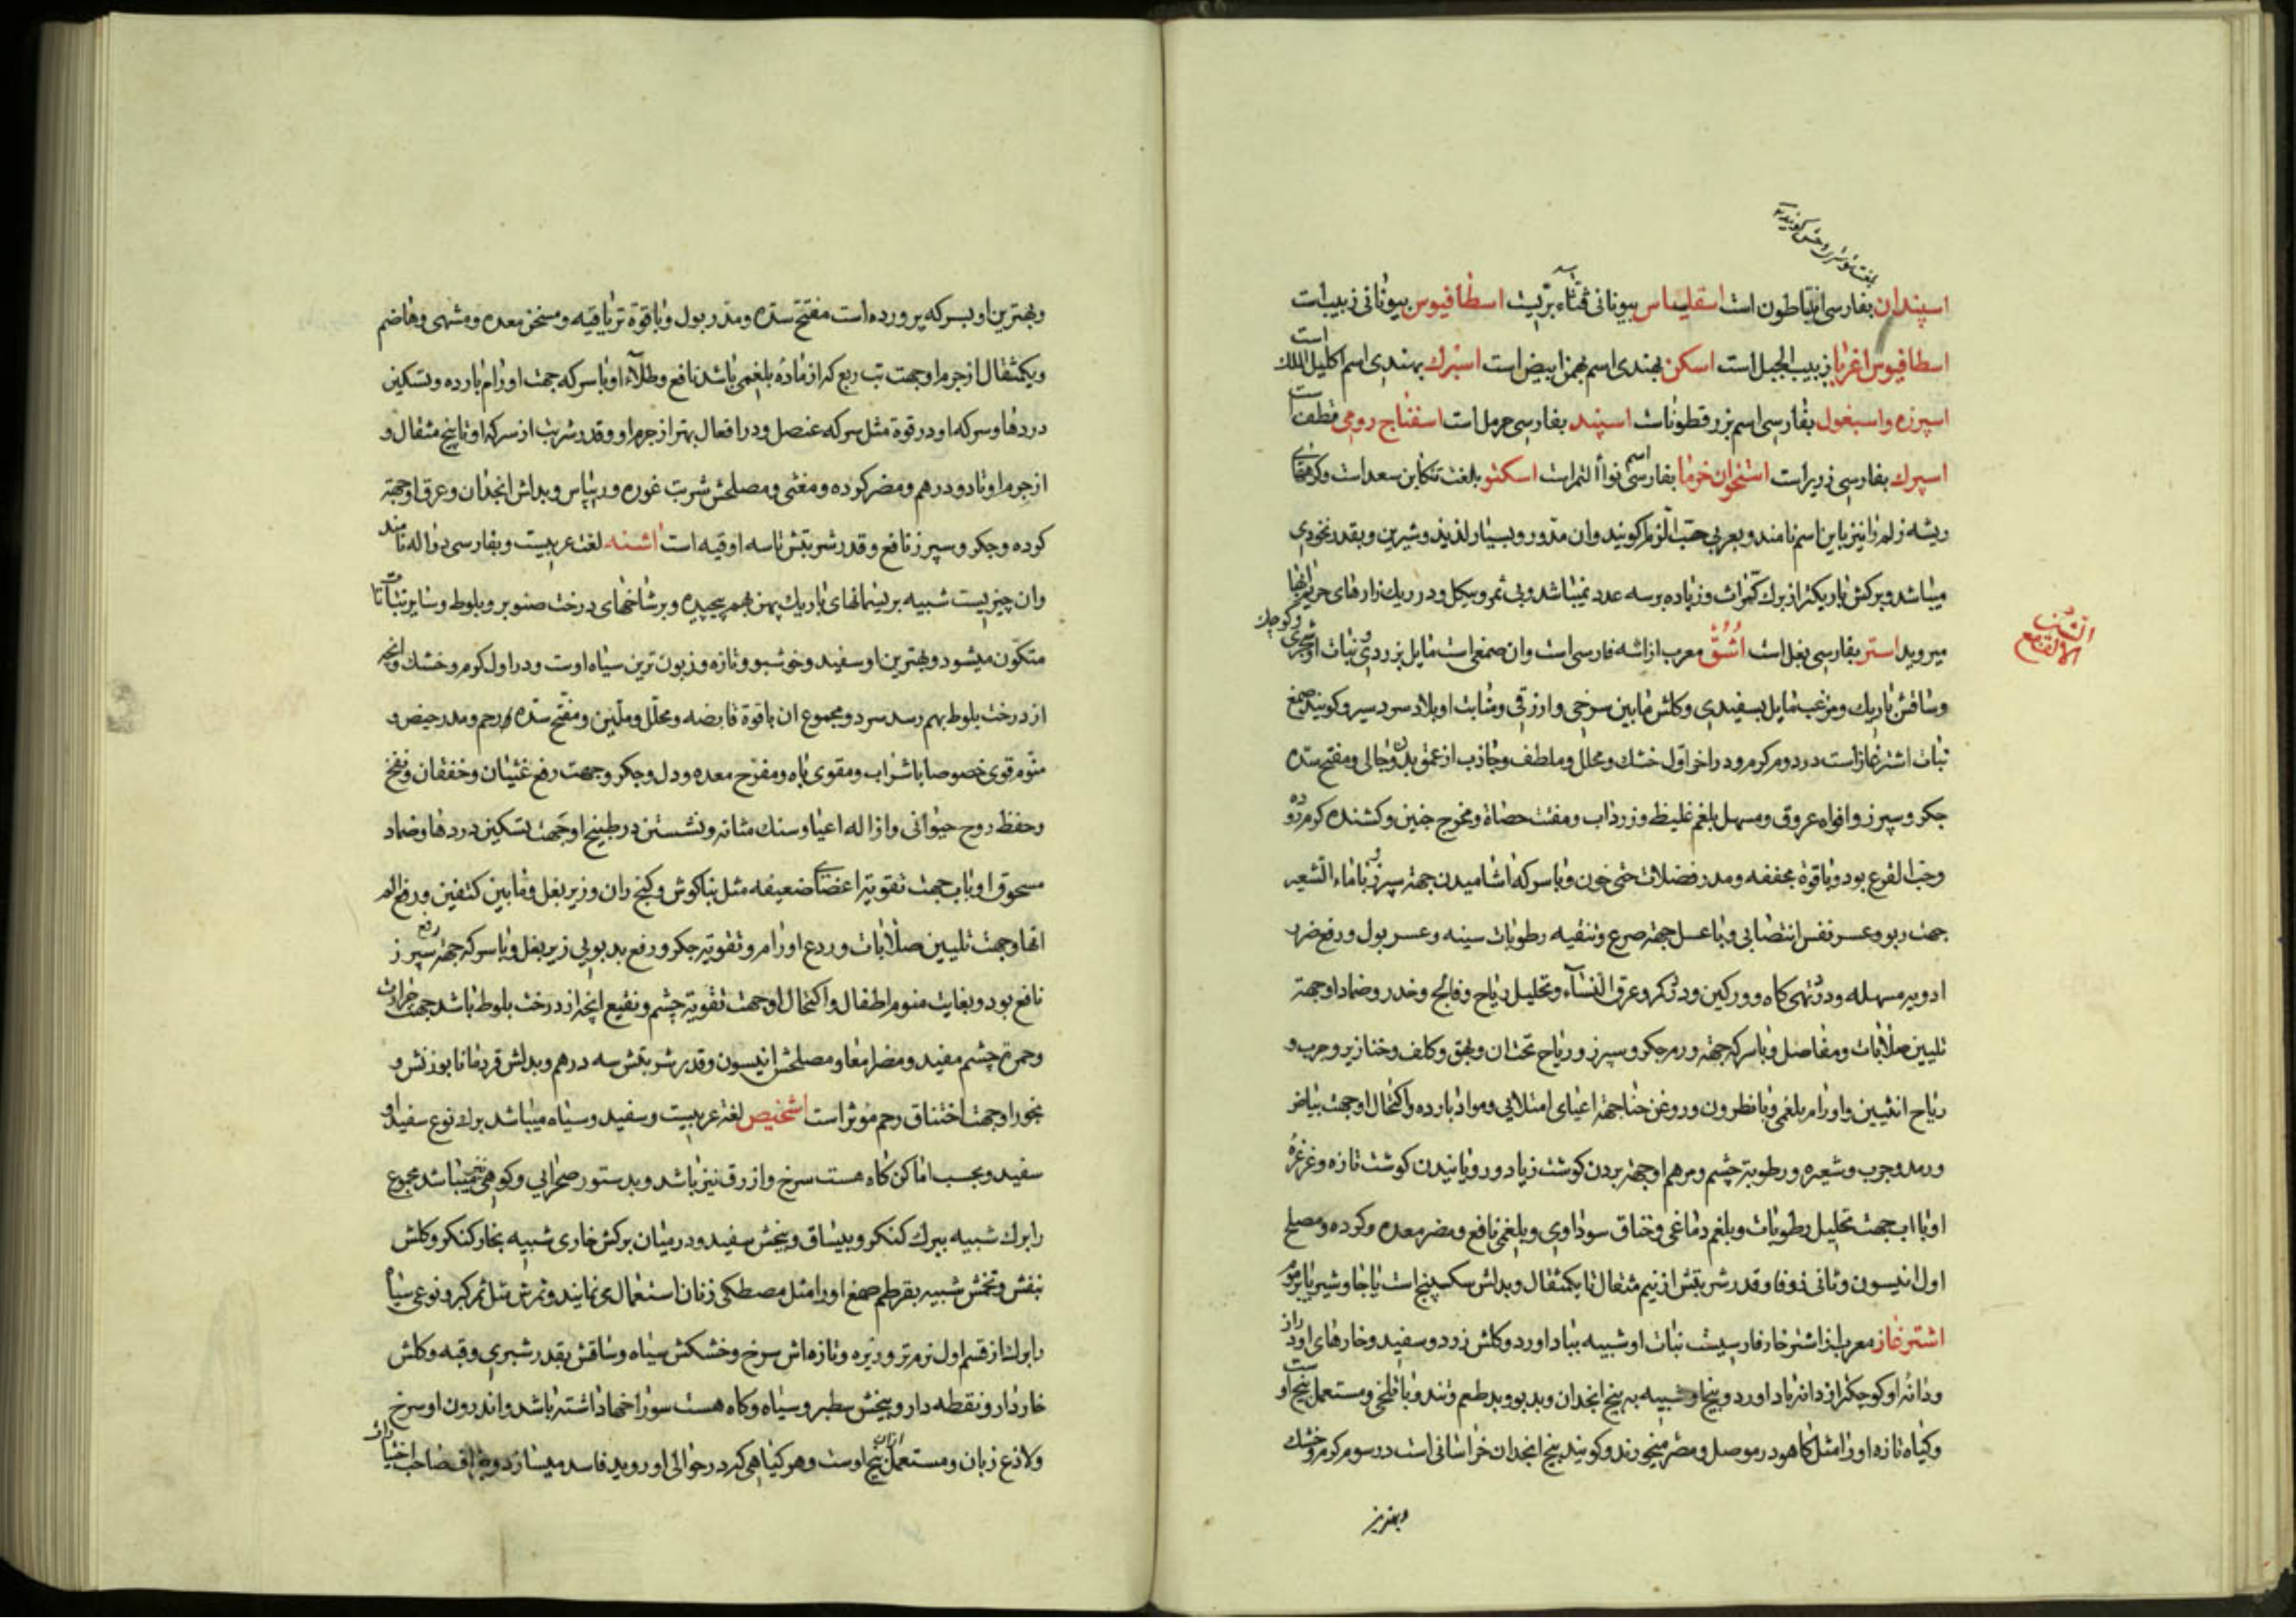 اسپندان بفارسی انیاطون است اسقلیناس بیونانی قثاء بریست اسطافیوس بیونانی زبیب است
اسطافیوس اغریا زبیب الجبل است اسکن بهندی اسم بهمن ابیض است اسپرک بهندی اسم اکلیل الملک است
اسپرزه واسبغول بفارسی اسم بزرقطوناست اسپند بفارسی حرمل است اسفناج رومی قطف است
اسپرک بفارسی زریر است استخوان خرما بفارسی اسم نواة التمر است اسکنو بلغت تنکابن سعد است وکاهی
ریشه زلم را نیز باین اسم نامند وبعربی حب الزلم کویند وان مدور وبسیار لذیذ وشیرین وبقدر نخودی
میباشد وبرکش باریکتر از برک کراث وزیاده برسه عدد نمیباشد وبی ثمر وبیکل ودر ریک زارهای
میروید استر بفارسی بغل است اشق معرب از اشه فارسی است وان صمغی است مایل بزردی ونبات او شجری وکوچک
وساقش باریک ومزغب مایل بسفیدی وکلش مابین سرخی وازرقی ومنابت او بلاد سردسیر وکویند صمغ
نبات اشترغاز است در دوم کرم ودر اخر اول خشک ومحلل وملطف وجاذب از عمق بدن وجالی ومفتح سده
جکر وسپرز وافواه عروق ومسهل بلغم غلیظ وزرداب ومفتت حصاة ومخرج جنین وکشنده کرم روده
وحب القرع بود وباقوة مجففه ومدر فضلات حتی خون وباسرکه اشامیدن جهته سپرز وبا ماء الشعیر
جهت ربو وعسر نفس انتصابی وباعسل جهته صرع وتنقیه رطوبات سینه وعسر بول ورفع ضرر
ادویه مسهله ودرد تهی کاه وورکین ودرد کمر وعرق النساء وتحلیل ریاح وفالج وخدر وضماد او جهته
تلیین صلابات ومفاصل وباسرکه جهته ورم جکر وسپرز وریاح تحت ان وبهق وکلف وخنازیر وجرب و
ریاح انثیین واورام بلغمی وبانطرون وروغن حنا جهته اعیای امتلایی ومواد بارده واکتحال او جهت بیاض
ورمد وجرب وشعیره ورطوبته چشم ومرهم او جهته بردن کوشت زیاد ورویانیدن کوشت تازه وغرغره
او باب جهت تحلیل رطوبات وبلغم دماغی وخناق سوداوی وبلغمی نافع ومضر معده وکرده ومصلح
اول انیسون وثانی زوفا وقدر شربتش از نیم مثقال تا یکمثقال وبدلش سکبینج است
اشترغاز معرب از اشترخار فارسیست نبات او شبیه بباداورد وکلش زرد وسفید وخارهای او دراز
ودانه او کوچکتر از دانه باداورد وبیخ او شبیه به بیخ انجدان وبدبو وبدطعم وتند وباتلخی ومستعمل بیخ اوست
وکیاه تازه اورا مثل کاهو در موصل ومصر میخورند وکویند بیخ انجدان خراسانی است در سوم کرم وخشک
وبهترین
وبهترین او بسرکه پرورده است مفتح سده ومدر بول وباقوة تریاقیه ومسخن معده ومشهی وهاضم
ویکمثقال از جرم او جهت تب ربع که از ماده بلغمی باشد نافع وطلاء او باسرکه جهت اورام بارده وتسکین
دردها وسرکه او در قوة مثل سرکه عنصل ودر افعال بهتر از جرم او وقدر شربت از سرکه او تا پنج مثقال و
از جرم او تا دو درهم ومضر کرده ومغثی ومصلحش شربت غوره وریباس وبدلش انجدان وعرق او جهته
کرده وجکر وسپرز نافع وقدر شربتش تا سه اوقیه است اشنه لغت عربیست وبفارسی دواله نامند
وان چیزیست شبیه بریسمانهای باریک پهن بهم پیچیده وبرشاخهای درخت صنوبر وبلوط وسایر نباتات
متکون میشود وبهترین او سفید وخوشبو وتازه وزبون ترین سیاه اوست ودر اول کرم وخشک وانچه
از درخت بلوط بهم رسد سرد ومجموع ان باقوة قابضه ومحلل وملین ومفتح سده رحم ومدر حیض و
منوم قوی خصوصا باشراب ومقوی باه ومفرح معده ودل وجکر وجهت رفع غثیان وخفقان ونفخ
وحفظ روح حیوانی وازاله اعیا وسنک مثانه ونشستن در طبیخ او جهت تسکین دردها وضماد
مسحوق او باب جهت تقویته اعضای ضعیفه مثل بناکوش وکنج ران وزیر بغل ومابین کتفین ورفع الم
انها وجهت تلیین صلابات وردع اورام وتقویته جکر ورفع بدبویی زیر بغل وباسرکه جهته رفع سپرز
نافع بود وبغایت منوم اطفال واکتحال او جهت تقویته چشم ونقیع انچه از درخت بلوط باشد جهت حرارت
وحمرة چشم مفید ومضر امعا ومصلحش انیسون وقدر شربتش سه درهم وبدلش قردمانا بوزنش و
بخور او جهت اختناق رحم موثر است اشخیص لغة عربیست وسفید وسیاه میباشد برک نوع سفید او
سفید وبحسب اماکن کاه هست سرخ وازرق نیز باشد وبدستور صحرایی وکوهی نیز میباشد مجموع
را برک شبیه ببرک کنکر وبیساق وبیخش سفید ودر میان برکش خاری شبیه بخار کنکر وکلش
بنفش وتخمش شبیه بقرطم صمغ اورا مثل مصطکی زنان استعمال مینمایند وثمرش مثل ثمر کبر ونوعی سیاه
را برک از قسم اول نرم تر وریزه وتازه اش سرخ وخشکش سیاه وساقش بقدر شبری وقبه وکلش
خاردار ونقطه دار وبیخش سطبر وسیاه وکاه هست سوراخها داشته باشد واندرون او سرخ
ولاذع زبان ومستعمل از ان بیخ اوست وهر کیاهی که در حوالی او روید فاسد میسازد صاحب اختیارات